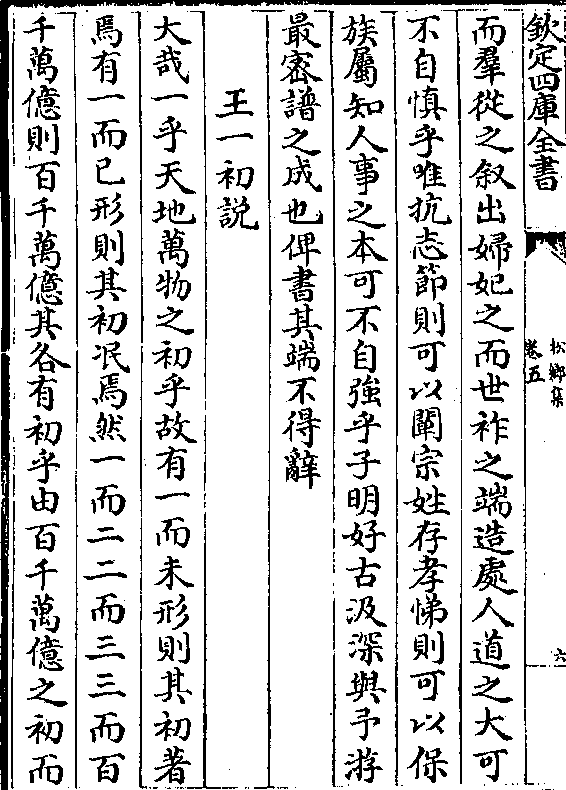 欽定四庫全書
松鄉集
卷五
六
而羣從之叙出婦妃之而世祚之端造處人道之大可
不自慎乎唯抗志節則可以闡宗姓存孝悌則可以保
族屬知人事之本可不自強乎子明好古汲深與予游
最密譜之成也俾書其端不得辭
王一初説
大哉一乎天地萬物之初乎故有一而未形則其初著
焉有一而已形則其初泯焉然一而二二而三三而百
千萬億則百千萬億其各有初乎由百千萬億之初而